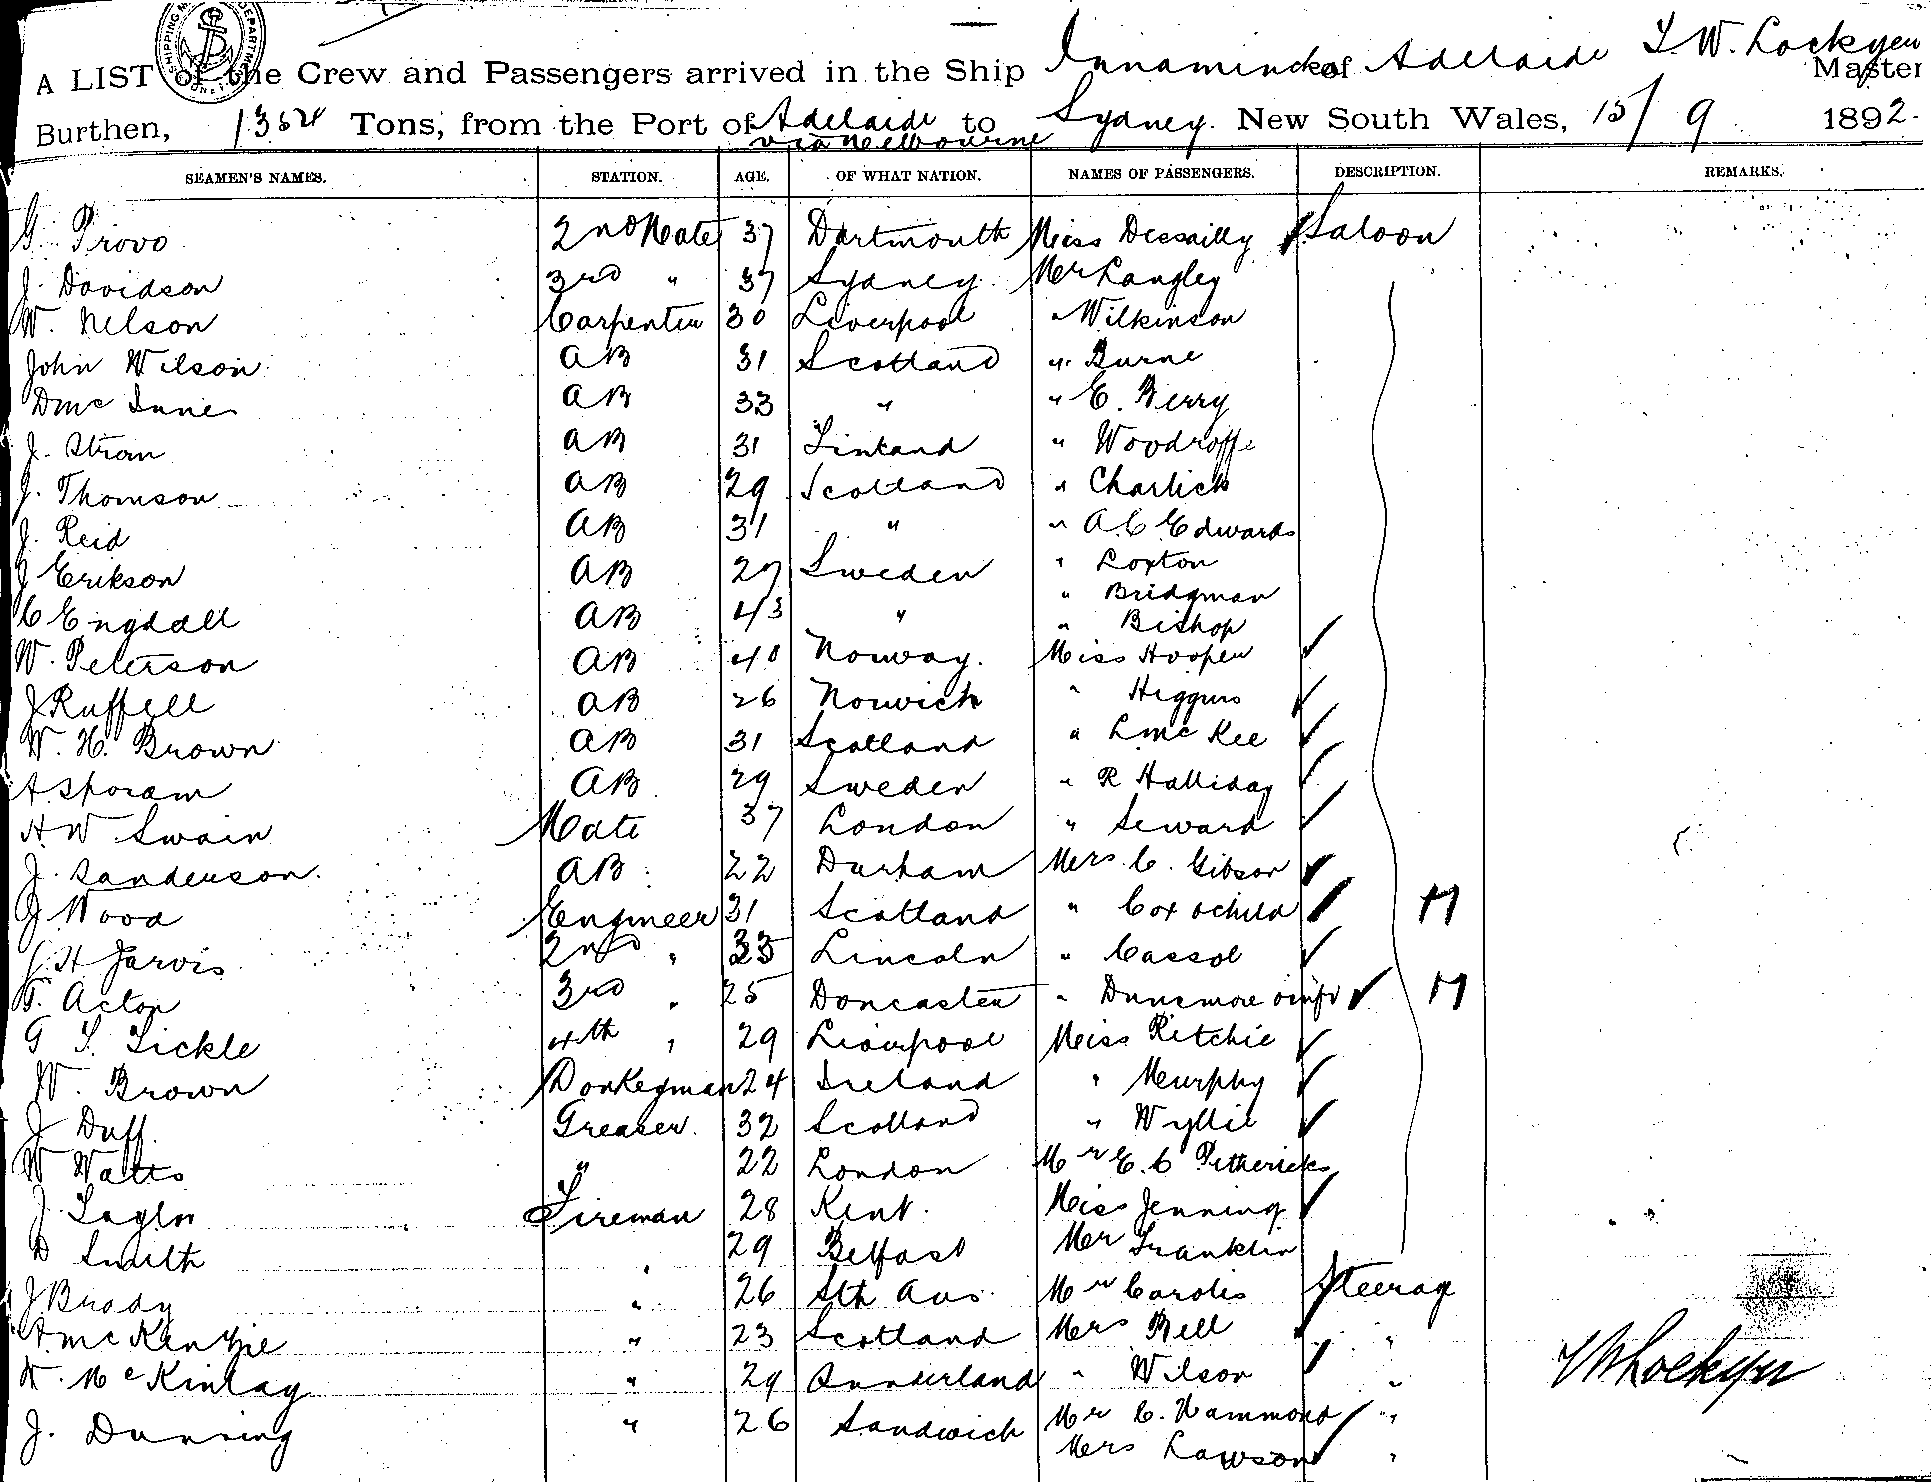 A LIST of the Crew and Passengers arrived in the Ship Innamincka of Adelaide T W. Lockyer Master
Burthen, Tons, from the Port of Adelaide via Melbourne to Sydney. New South Wales, 15/9 1892.
SEAMEN'S NAMES. STATION. AGE. OF WHAT NATION. NAMES OF PASSENGERS. DESCRIPTION. REMARKS.
G. Provo 2nd Mate 37 Dartmouth Miss Dessailly Saloon
J. Davidson 3rd " 37 Sydney. Mr Langley
W. Nelson Carpenter 30 Liverpool " Wilkinson
John Wilson AB 31 Scotland " Burne
D Mc Innes AB 33 " " E. Berry
J. Stran AB 31 Finland " Woodroffe
J. Thomson AB 29 Scotland " Charlick
J. Reid AB 31 " " A. C Edwards
J Erikson AB 27 Sweden " Loxton
" Bridgman
C Engdall AB 43 " " Bishop
W. Peterson AB 40 Norway. Miss Hooper
J Ruffell AB 26 Norwich " Higgins
W. H. Brown AB 31 Scotland " L Mc Kee
A Sporam AB 29 Sweden " R Halliday
H W Swain Mate 37 London " Seward
J. Sanderson. AB 22 Durham Mrs C. Gibson
J Wood Engineer 31 Scotland " Cox & child M
H Jarvis 2nd " 33 Lincoln " Cassol
T. Acton 3rd " 25 Doncaster " Dunsmore & inft M
G T. Tickle 4th " 29 Liverpool Miss Ritchie
W. Brown Donkeyman 24 Ireland " Murphy
J Duff. Greaser. 32 Scotland " Wyllie
W Watts " 22 London Mr E. C Petherick
J. Taylor Fireman 28 Kent. Miss Jenning
D Smith " 29 Belfast Mr Franklin
J Brady " 26 Sth Aus. Mr Carolis Steerag
A Mc Kenzie " 23 Scotland Mrs Bell "
W. Mc Kinlay " 29 Sunderland " Wilson "
J. Dunning " 26 Sandwich Mr C. Hammond "
Mrs Lawson "
T W Lockyer